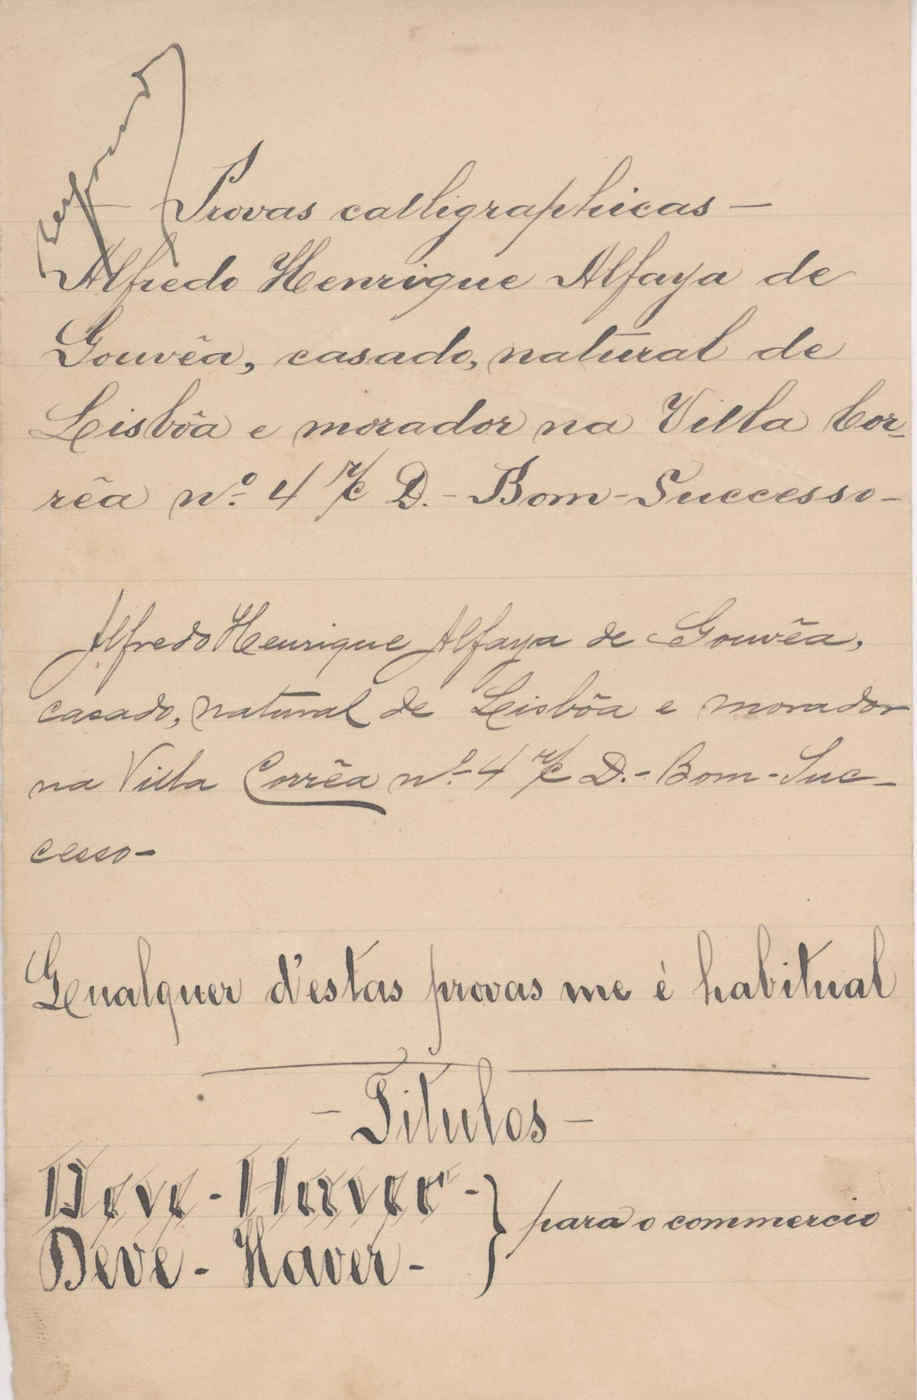 — Provas calligraphicas —
Alfredo Henrique Alfaya de
Gouvêa, casado, natural de
Lisbôa e morador na Villa Cor-
rêa nº 4 r/c D. - Bom-Successo -
Alfredo Henrique Alfaya de Gouvêa,
casado, natural de Lisbôa e morador
na Villa Corrêa nº 4 r/c D. - Bom-Suc-
cesso -
Qualquer d'estas provas me é habitual
— Titulos —
Deve - Haver -
Deve - Haver - } para o commercio